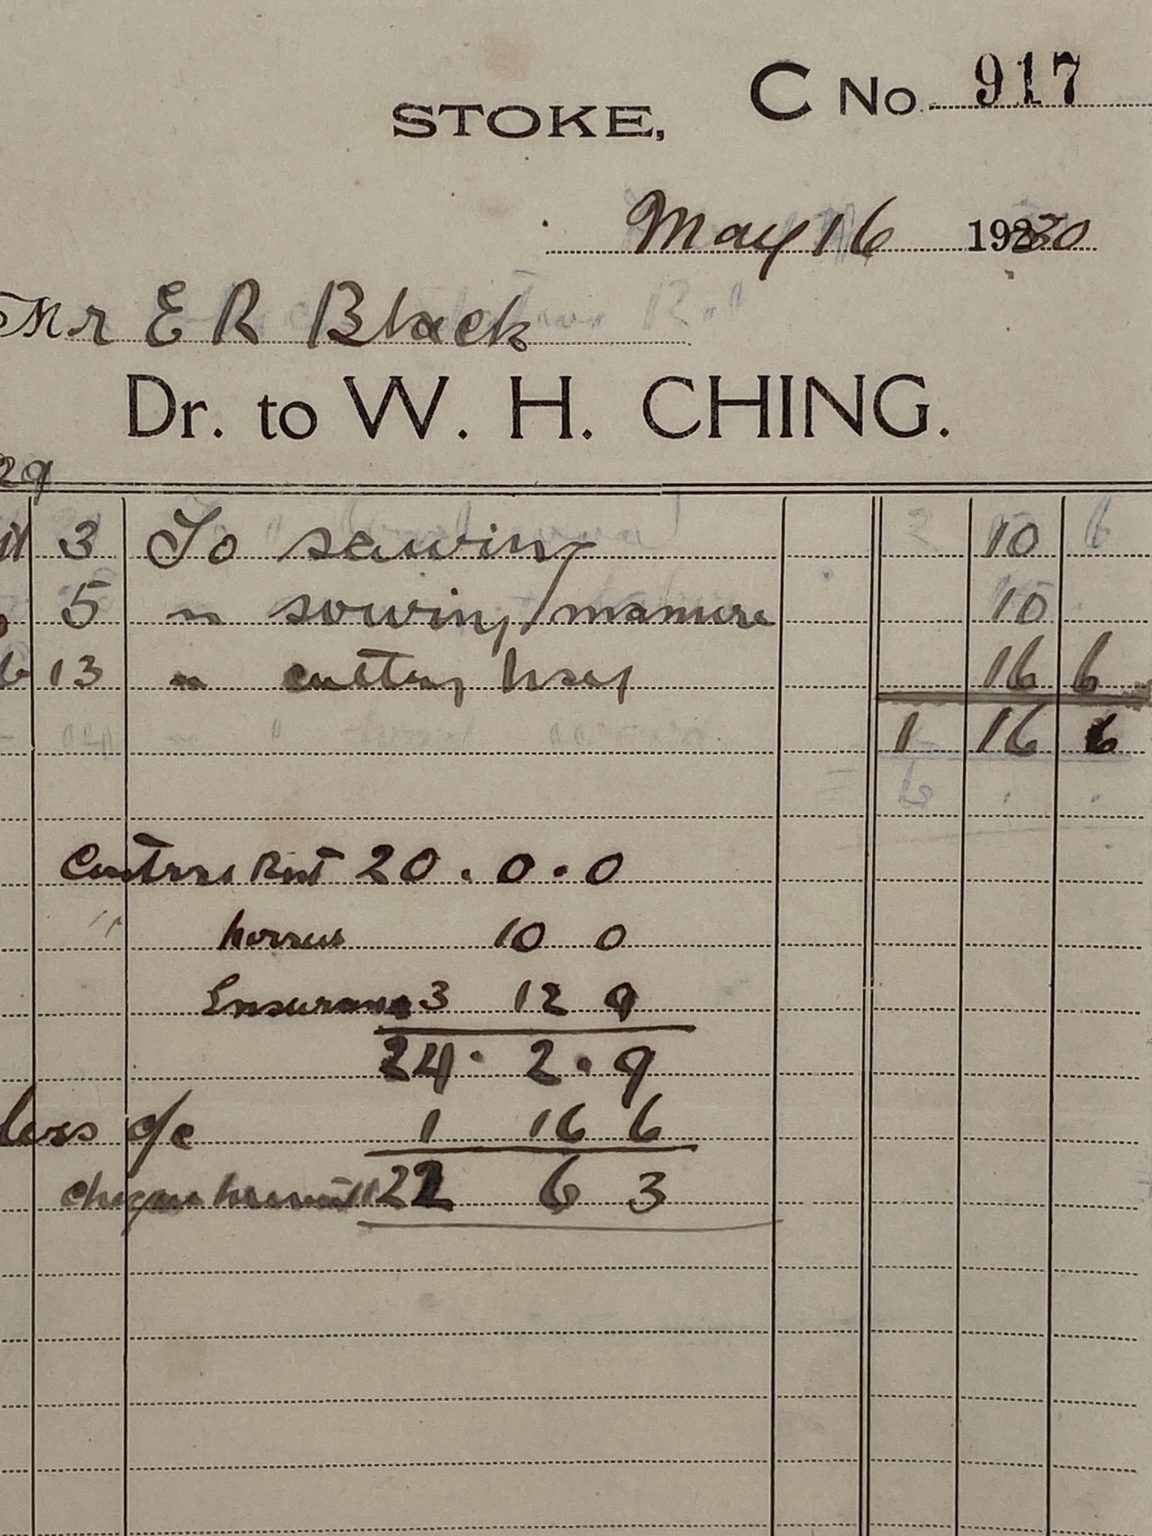 STOKE, C No. 917
May 16 1930
Mr E R Black
Dr. to W. H. CHING.
29
3 To sawing 10
5 " sowing manure 10
13 " cutting hay 16 6
1 16 6
Rent 20 . 0 . 0
" horses 10 0
Insurance 3 12 9
24 . 2 . 9
less a/c 1 16 6
cheque herewith 22 6 3